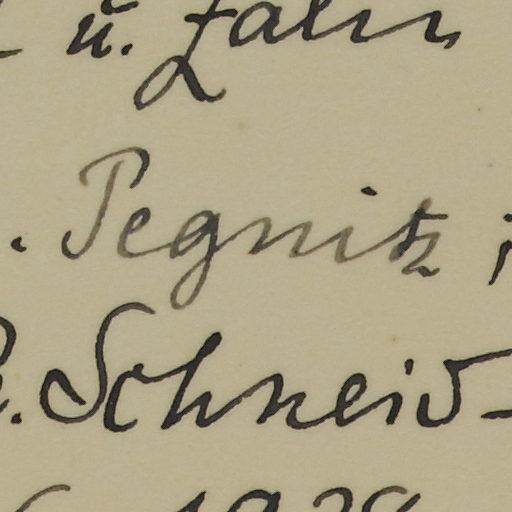 u. Zahn
. Pegnitz ;
. Schneid-
1928